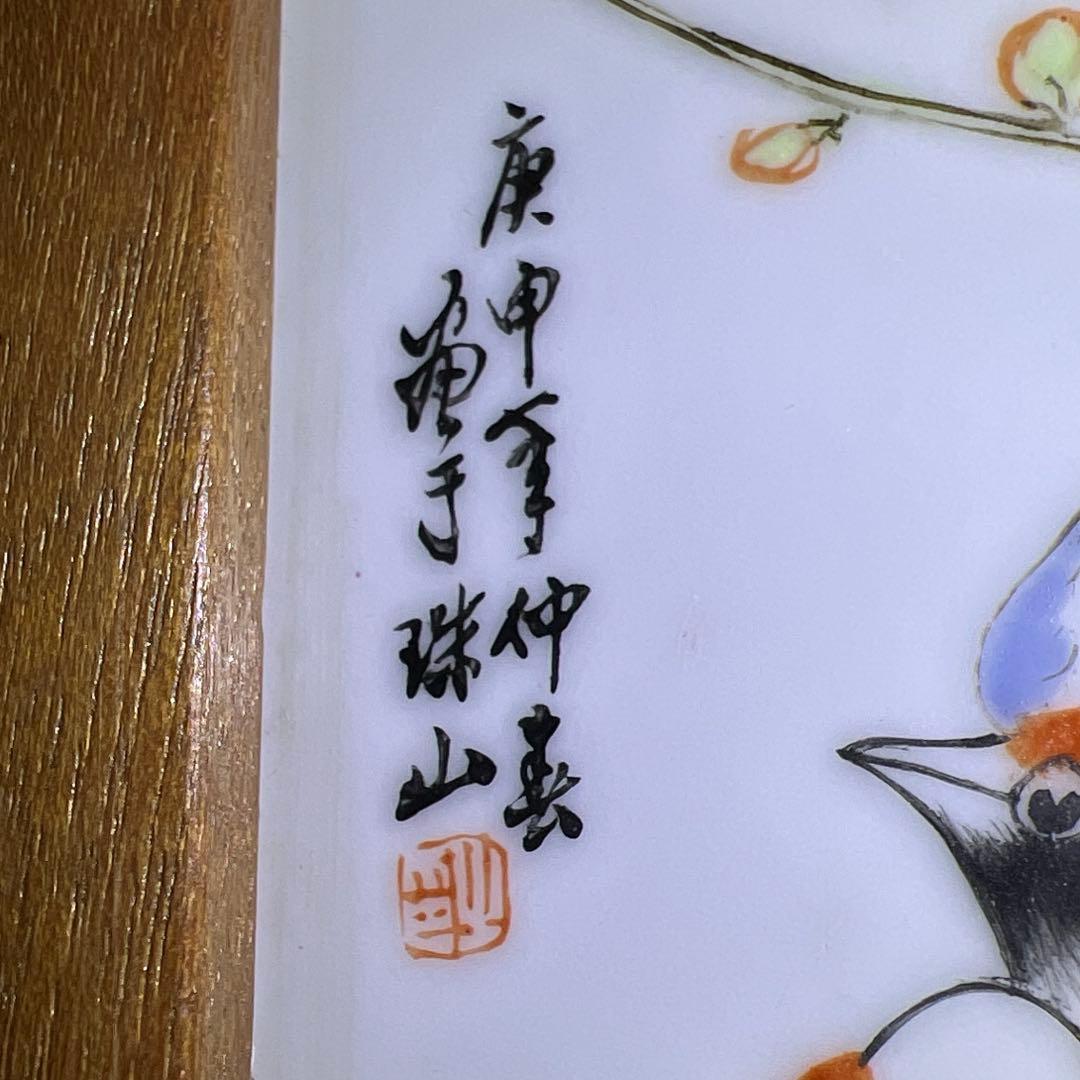 庚申年仲春
画于珠山